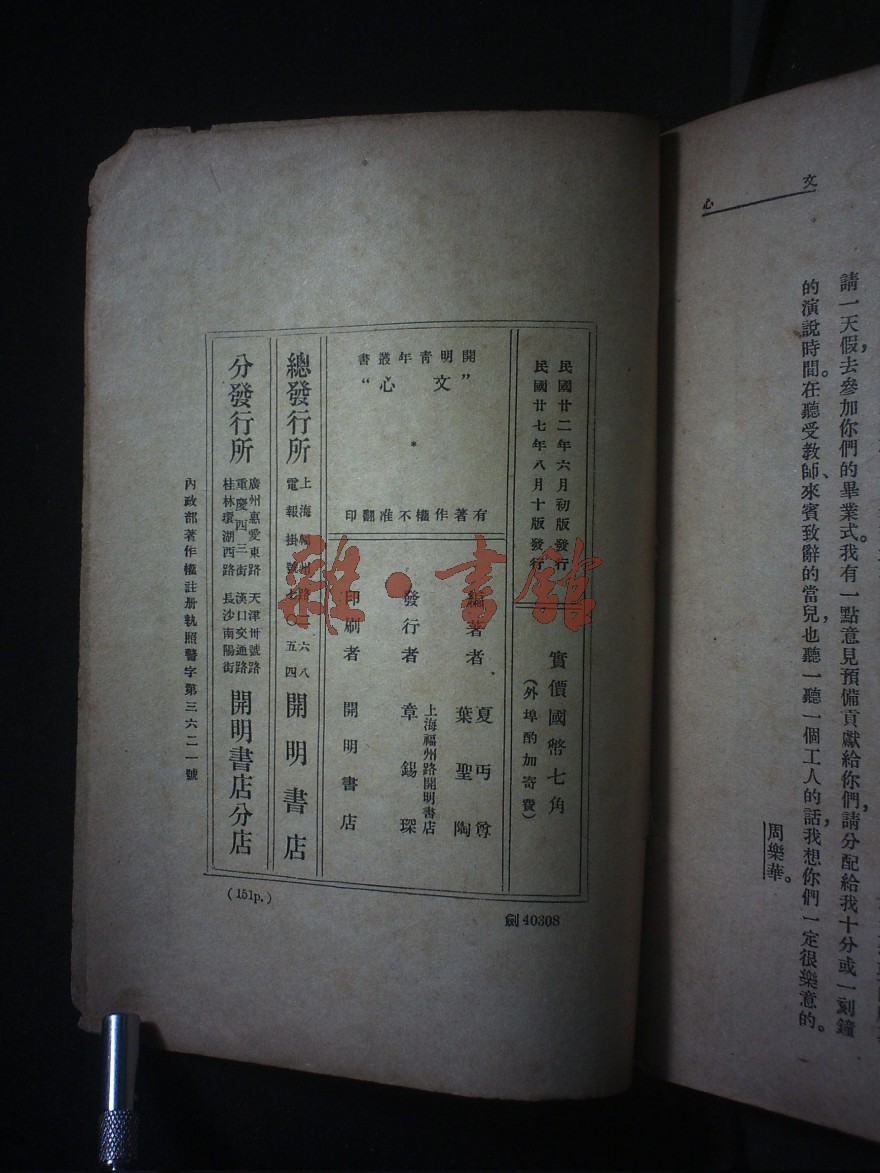 文心
請一天假,去參加你們的畢業式。我有一點意見預備貢獻給你們,請分配給我十分或一刻鐘
的演說時間。在聽受教師、來賓致辭的當兒,也聽一聽一個工人的話,我想你們一定很樂意的。
周樂華。
民國廿二年六月初版發行
民國廿七年八月十版發行
實價國幣七角
(外埠酌加寄費)
開明青年叢書
“文心”
*
有著作權不准翻印
編著者 夏丏尊
葉聖陶
上海福州路開明書店
發行者 章錫琛
印刷者 開明書店
總發行所 上海福州路 六八
電報掛號七〇五四 開明書店
分發行所 廣州惠愛東路 天津卅號路
重慶四三街 漢口交通路
桂林環湖西路 長沙南陽街 開明書店分店
內政部著作權註册執照警字第三六二一號
(151p.)
劍 40308
雜·書館